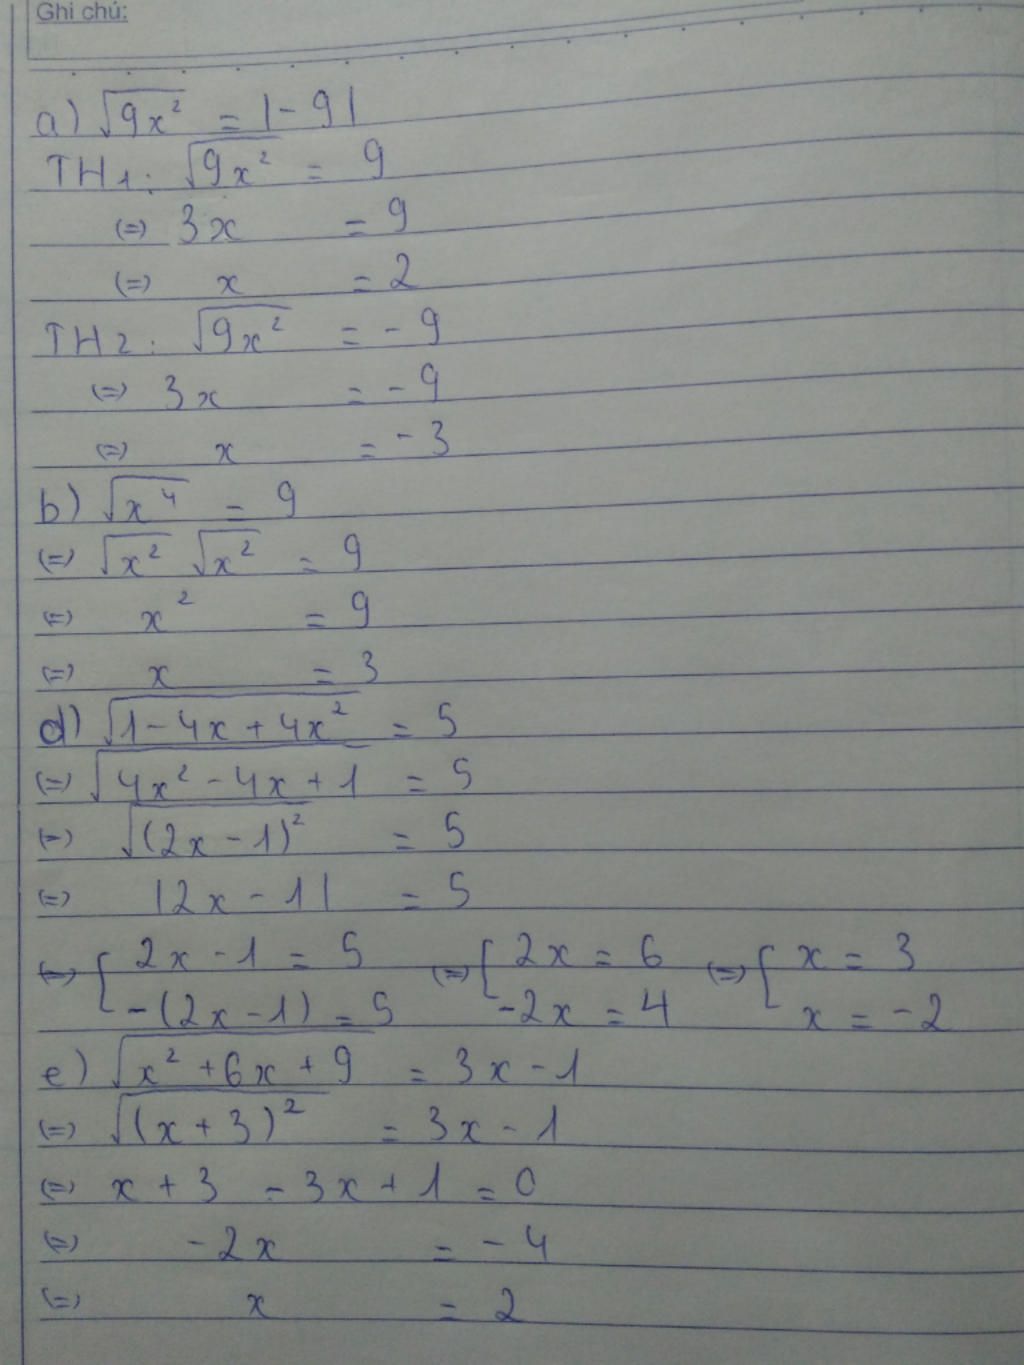 Ghi chú:
a) √(9x²) = |-9|
TH1: √(9x²) = 9
(=) 3x = 9
(=) x = 2
TH2: √(9x²) = -9
(=) 3x = -9
(=) x = -3
b) √(x⁴) = 9
(=) √(x²) √(x²) = 9
(=) x² = 9
(=) x = 3
d) √(1-4x+4x²) = 5
(=) √(4x²-4x+1) = 5
(=) √((2x-1)²) = 5
(=) |2x-1| = 5
(=) [ 2x-1 = 5 (=) [ 2x = 6 (=) [ x = 3
-(2x-1) = 5 -2x = 4 x = -2
e) √(x²+6x+9) = 3x-1
(=) √((x+3)²) = 3x-1
(=) x+3 -3x+1 = 0
(=) -2x = -4
(=) x = 2